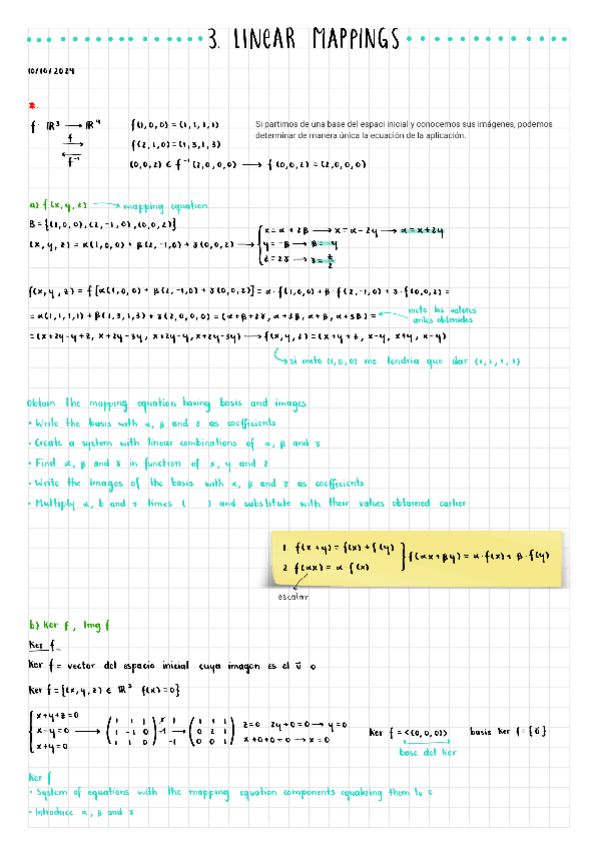 3. LINEAR MAPPINGS
10/10/2024
f: ℝ³ → ℝ⁴ f(1,0,0) = (1,1,1,1)
Si partimos de una base del espaci inicial y conocemos sus imágenes, podemos
determinar de manera única la ecuación de la aplicación.
f f(2,-1,0) = (3,1,3)
f⁻¹ (0,0,2) ∈ f⁻¹(2,0,0,0) → f(0,0,2) = (2,0,0,0)
a) f(x,y,z) → mapping equation
B = {(1,0,0), (2,-1,0), (0,0,2)}
(x,y,z) = α(1,0,0) + β(2,-1,0) + γ(0,0,2) → x = α + 2β → x = α - 2y → α = x + 2y
y = -β → β = -y
z = 2γ → γ = z/2
f(x,y,z) = f[α(1,0,0) + β(2,-1,0) + γ(0,0,2)] = α·f(1,0,0) + β·f(2,-1,0) + γ·f(0,0,2) =
= α(1,1,1,1) + β(1,3,1,3) + γ(2,0,0,0) = (α+β+2γ, α+3β, α+β, α+3β) = meto los valores
antes obtenidos
= (x+2y-y+z, x+2y-3y, x+2y-y, x+2y-3y) → f(x,y,z) = (x+y+z, x-y, x+y, x-y)
si meto (1,0,0) me tendria que dar (1,1,1,1)
Obtain the mapping equation having basis and images
• Write the basis with α, β and γ as coefficients
• Create a system with linear combinations of α, β and γ
• Find α, β and γ in function of x, y and z
• Write the images of the basis with α, β and γ as coefficients
• Multiply α, b and γ times ( ) and substitute with their values obtained earlier
1. f(x+y) = f(x) + f(y)
f(αx+βy) = α·f(x) + β·f(y)
2. f(αx) = α·f(x)
escalar
b) Ker f, Img f
Ker f
Ker f = vector del espacio inicial cuya imagen es el v̄ 0
Ker f = {(x,y,z) ∈ ℝ³ f(x)=0}
x+y+z=0
x-y=0
x+y=0
1 1 1
1 -1 0
1 1 0
1 1 1
0 2 1
0 0 1
z=0 2y+0=0 → y=0
x+0+0=0 → x=0
Ker f = <(0,0,0)> basis Ker f = {0̄}
base del Ker
Ker f
• System of equations with the mapping equation components equalizing them to
• Introduce α, β and γ